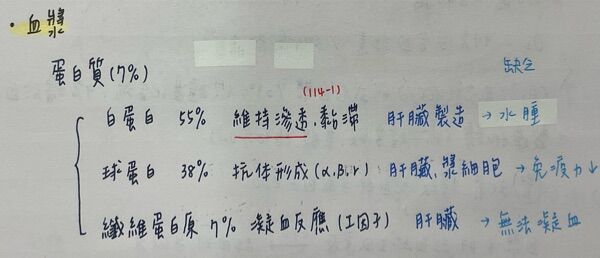 • 血漿
蛋白質(7%)
缺乏
(114-1)
白蛋白 55% 維持滲透、黏滯 肝臟製造 → 水腫
球蛋白 38% 抗体形成(α.β.r) 肝臟、漿細胞 → 免疫力↓
纖維蛋白原 7% 凝血反應(I因子) 肝臟 → 無法凝血